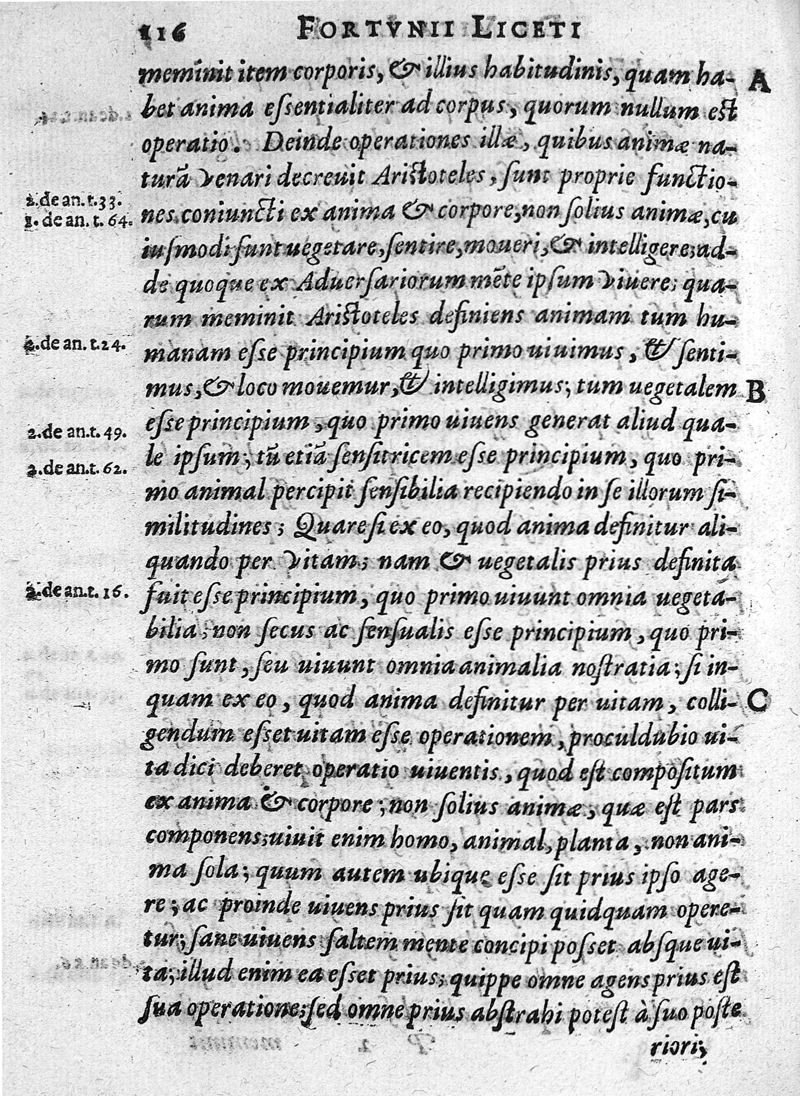 116 FORTVNII LICETI
meminit item corporis, & illius habitudinis, quam ha- A
bet anima eſſentialiter ad corpus, quorum nullum eſt
operatio. Deinde operationes illæ, quibus animæ na-
turā venari decreuit Ariſtoteles, ſunt proprie functio-
2. de an. t. 33.
2. de an. t. 64.
nes coniuncti ex anima & corpore, non ſolius animæ, cu
iuſmodi ſunt uegetare, ſentire, moueri, & intelligere; ad-
de quoque ex Aduerſariorum mēte ipſum viuere; qua-
rum meminit Ariſtoteles definiens animam tum hu-
2. de an. t. 24.
manam eſſe principium quo primo uiuimus, & ſenti-
mus, & loco mouemur, & intelligimus; tum uegetalem B
2. de an. t. 49.
eſſe principium, quo primo uiuens generat aliud qua-
2. de an. t. 62.
le ipſum; tū etiā ſenſitricem eſſe principium, quo pri-
mo animal percipit ſenſibilia recipiendo in ſe illorum ſi-
militudines; Quare ſi ex eo, quod anima definitur ali-
quando per vitam; nam & uegetalis prius definita
2. de an. t. 16.
fuit eſſe principium, quo primo uiuunt omnia uegeta-
bilia; non ſecus ac ſenſualis eſſe principium, quo pri-
mo ſunt, ſeu uiuunt omnia animalia noſtratia; ſi in-
quam ex eo, quod anima definitur per uitam, colli- C
gendum eſſet uitam eſſe operationem, proculdubio ui-
ta dici deberet operatio uiuentis, quod eſt compoſitum
ex anima & corpore; non ſolius animæ, quæ eſt pars
componens; uiuit enim homo, animal, planta, non ani-
ma ſola; quum autem ubique eſſe ſit prius ipſo age-
re; ac proinde uiuens prius ſit quam quidquam opere-
tur; ſane uiuens ſaltem mente concipi poſſet abſque ui-
ta; illud enim ea eſſet prius; quippe omne agens prius eſt
ſua operatione; ſed omne prius abſtrahi poteſt à ſuo poſte
riori;